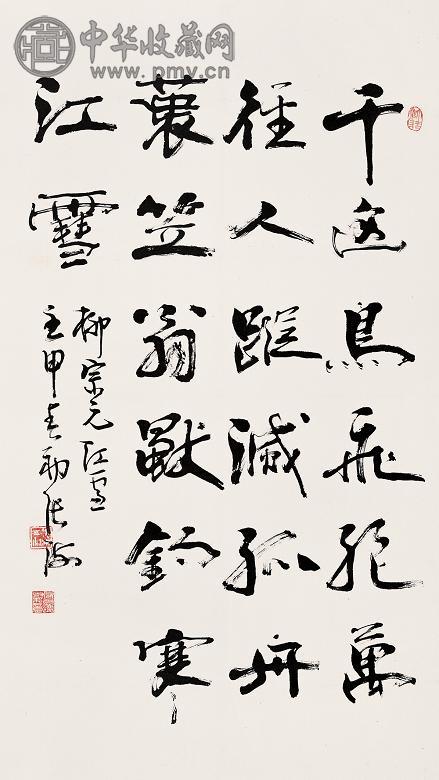 中华收藏网
www.pmyv.cn
千山鳥飛絕萬
徑人蹤滅孤舟
蓑笠翁獨釣寒
江雪
柳宗元江雪
張海